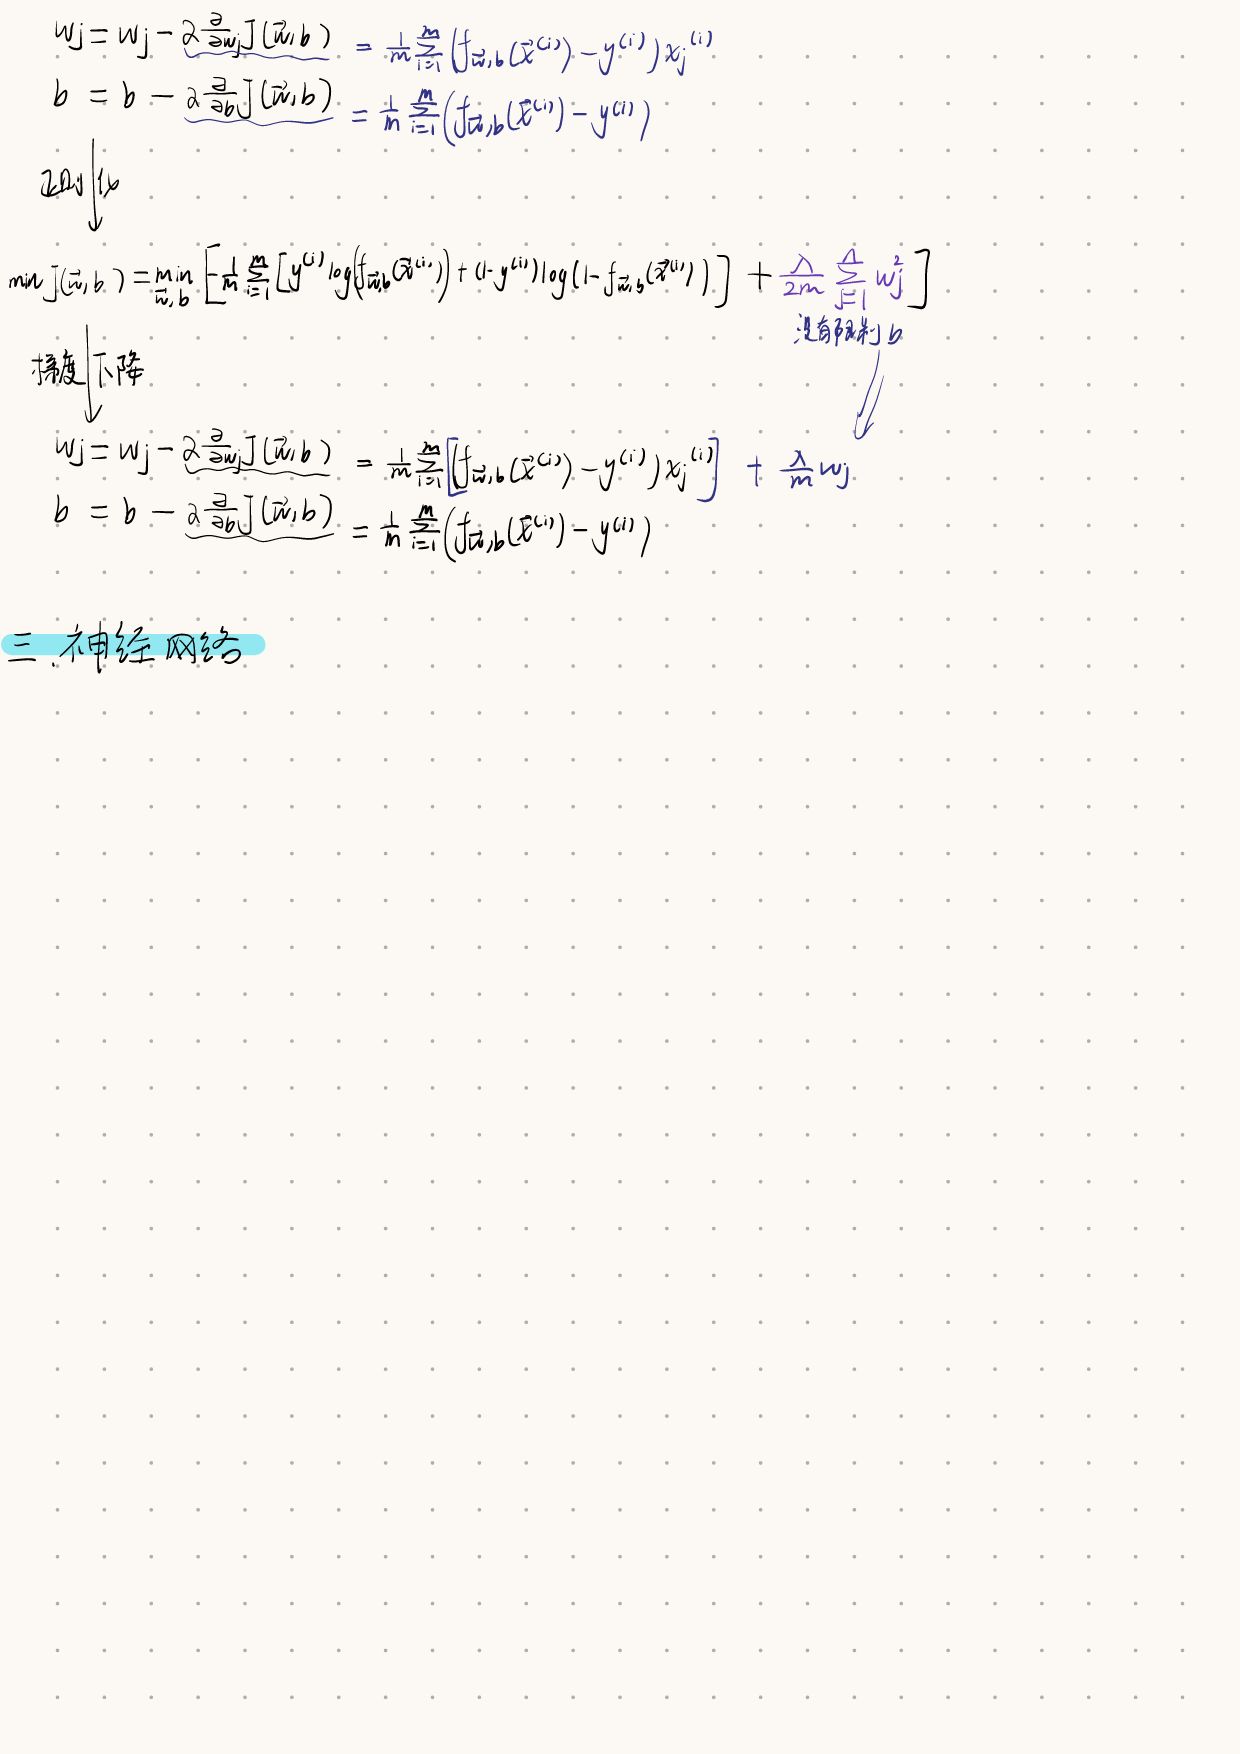 wj = wj - α ∂/∂wj J(w⃗,b) = 1/m Σ_{i=1}^{m} (f_{w⃗,b}(x⃗^(i)) - y^(i)) xj^(i)
b = b - α ∂/∂b J(w⃗,b) = 1/m Σ_{i=1}^{m} (f_{w⃗,b}(x⃗^(i)) - y^(i))
正则化
min J(w⃗,b) = min_{w⃗,b} [-1/m Σ_{i=1}^{m} [y^(i) log(f_{w⃗,b}(x⃗^(i))) + (1-y^(i)) log(1-f_{w⃗,b}(x⃗^(i)))] + λ/2m Σ_{j=1}^{n} wj^2]
没有限制 b
梯度下降
wj = wj - α ∂/∂wj J(w⃗,b) = 1/m Σ_{i=1}^{m} [(f_{w⃗,b}(x⃗^(i)) - y^(i)) xj^(i)] + λ/m wj
b = b - α ∂/∂b J(w⃗,b) = 1/m Σ_{i=1}^{m} (f_{w⃗,b}(x⃗^(i)) - y^(i))
三.神经网络